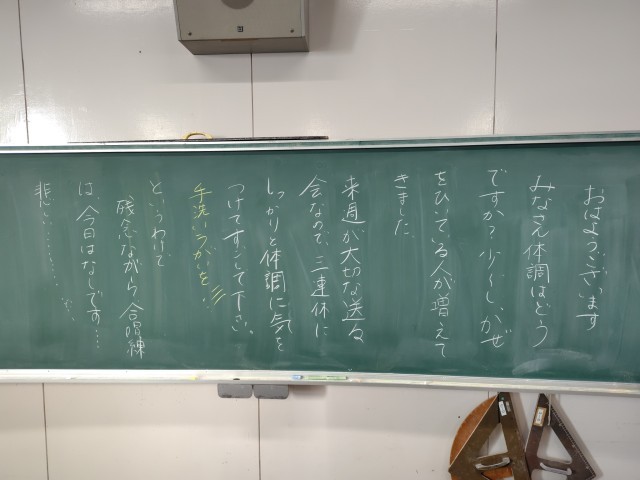 おはようございます
みなさん体調はどう
ですか？少しかぜ
をひいている人が増えて
きました。
来週が大切な送る
会なので、三連休に
しっかりと体調に気を
つけてすごして下さい。
手洗いうがいを…
というわけで
残念ながら合唱練
は今日はなしです…
悲しい…………